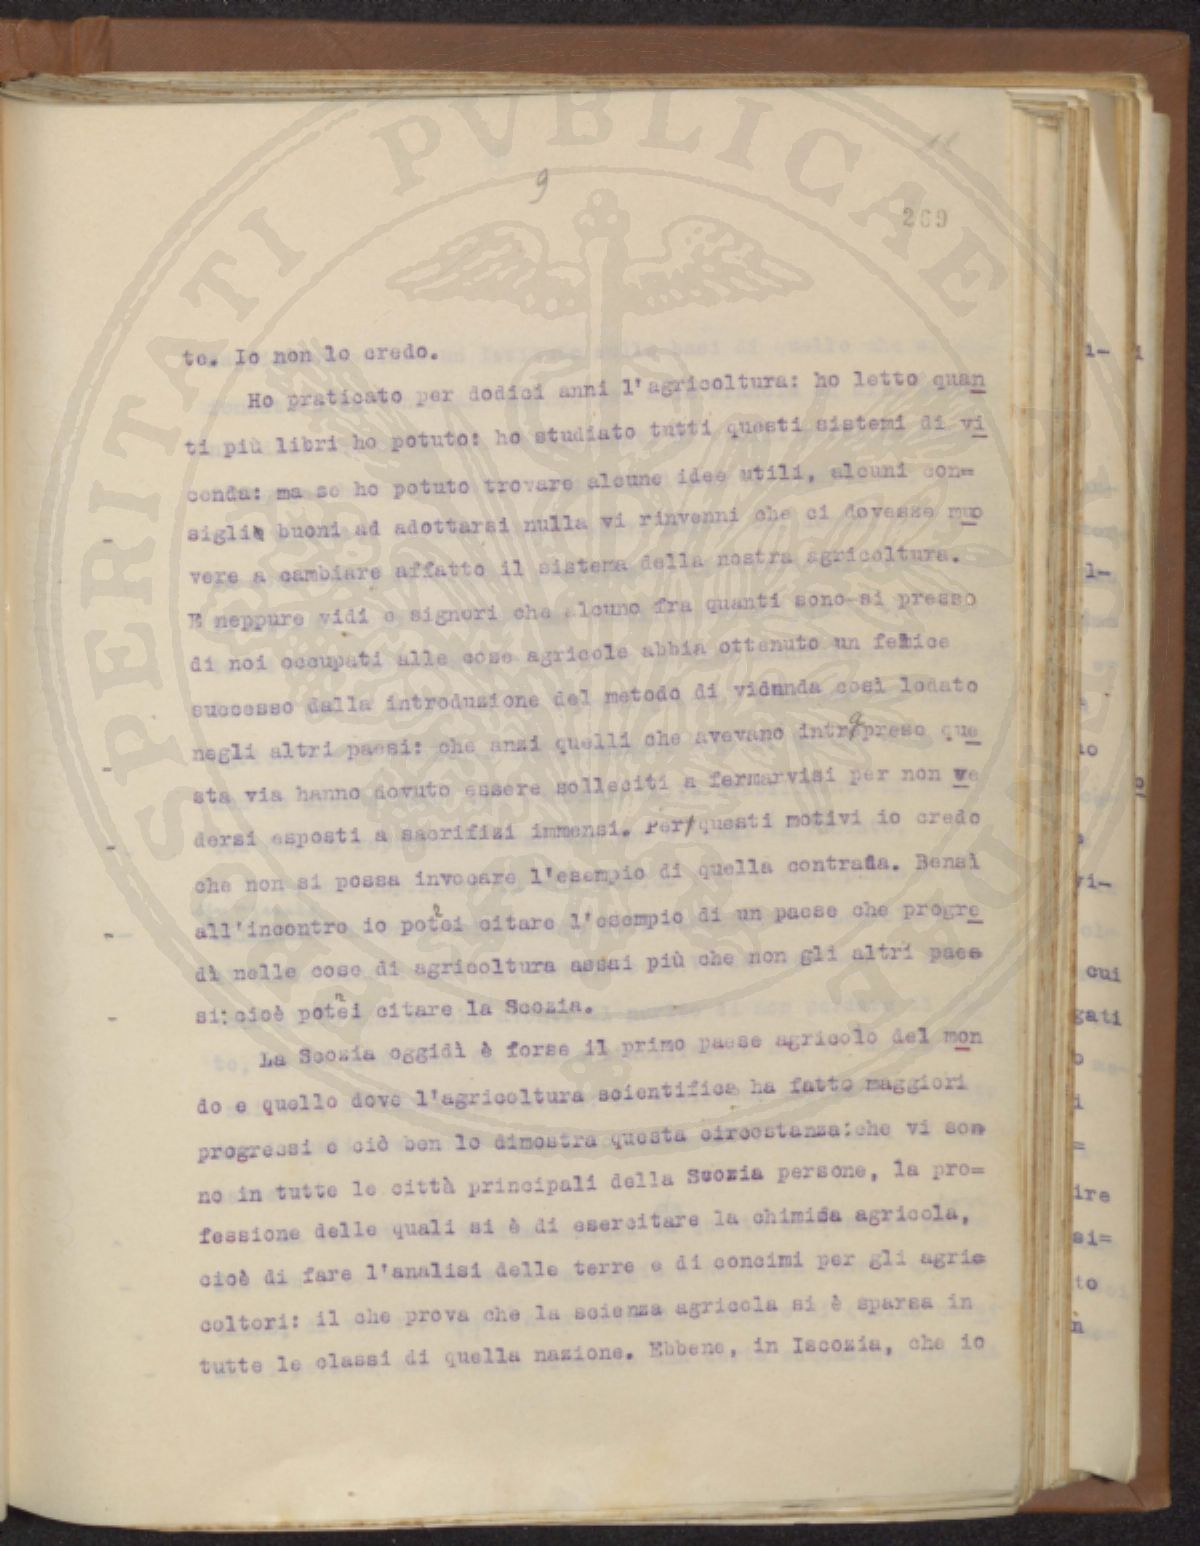 11
9
269
SPERITATI PVBLICAE
te. Io non lo credo.
Ho praticato per dodici anni l'agricoltura: ho letto quan
ti più libri ho potuto: ho studiato tutti questi sistemi di vi
cenda: ma se ho potuto trovare alcune idee utili, alcuni con=
sigli buoni ad adottarsi nulla vi rinvenni che ci dovesse muo
vere a cambiare affatto il sistema della nostra agricoltura.
E neppure vidi o signori che alcuno fra quanti sono si presso
di noi occupati alle cose agricole abbia ottenuto un felice
successo dalla introduzione del metodo di vicunda così lodato
negli altri paesi: che anzi quelli che avevano intrapreso que
sta via hanno dovuto essere solleciti a fermarvisi per non ve
dersi esposti a sacrifizi immensi. Per questi motivi io credo
che non si possa invocare l'esempio di quella contrada. Bensì
all'incontro io potrei citare l'esempio di un paese che progre
dì nelle cose di agricoltura assai più che non gli altri pae=
si: cioè potrei citare la Scozia.
La Scozia oggidì è forse il primo paese agricolo del mon
do e quello dove l'agricoltura scientifica ha fatto maggiori
progressi e ciò ben lo dimostra questa circostanza: che vi so=
no in tutte le città principali della Scozia persone, la pro=
fessione delle quali si è di esercitare la chimica agricola,
cioè di fare l'analisi delle terre e di concimi per gli agri=
coltori: il che prova che la scienza agricola si è sparsa in
tutte le classi di quella nazione. Ebbene, in Iscozia, che io